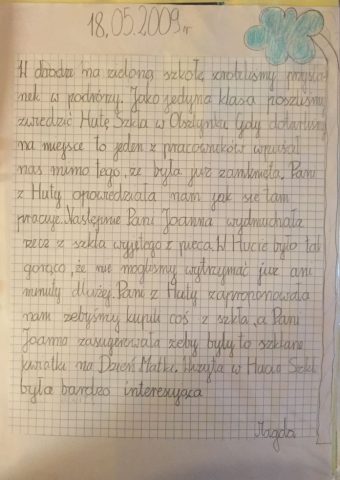 18.05.2009r
W drodze na zieloną szkołę zrobiliśmy przysta-
nek w podróży. Jako jedyna klasa poszliśmy
zwiedzić Hutę Szkła w Olsztynku. Gdy dotarliśmy
na miejsce to jeden z pracowników wpuścił
nas mimo tego, że była już zamknięta. Pani
z Huty opowiedziała nam jak się tam
pracuje. Następnie Pani Joanna wydmuchała
rzecz z szkła wyjętego z pieca. W Hucie było tak
gorąco, że nie mogliśmy wytrzymać już ani
minuty dłużej. Pani z Huty zaproponowała
nam żebyśmy kupili coś z szkła, a Pani
Joanna zasugerowała żeby były to szklane
kwiatki na Dzień Matki. Wizyta w Hucie Szkła
była bardzo interesująca
Magda